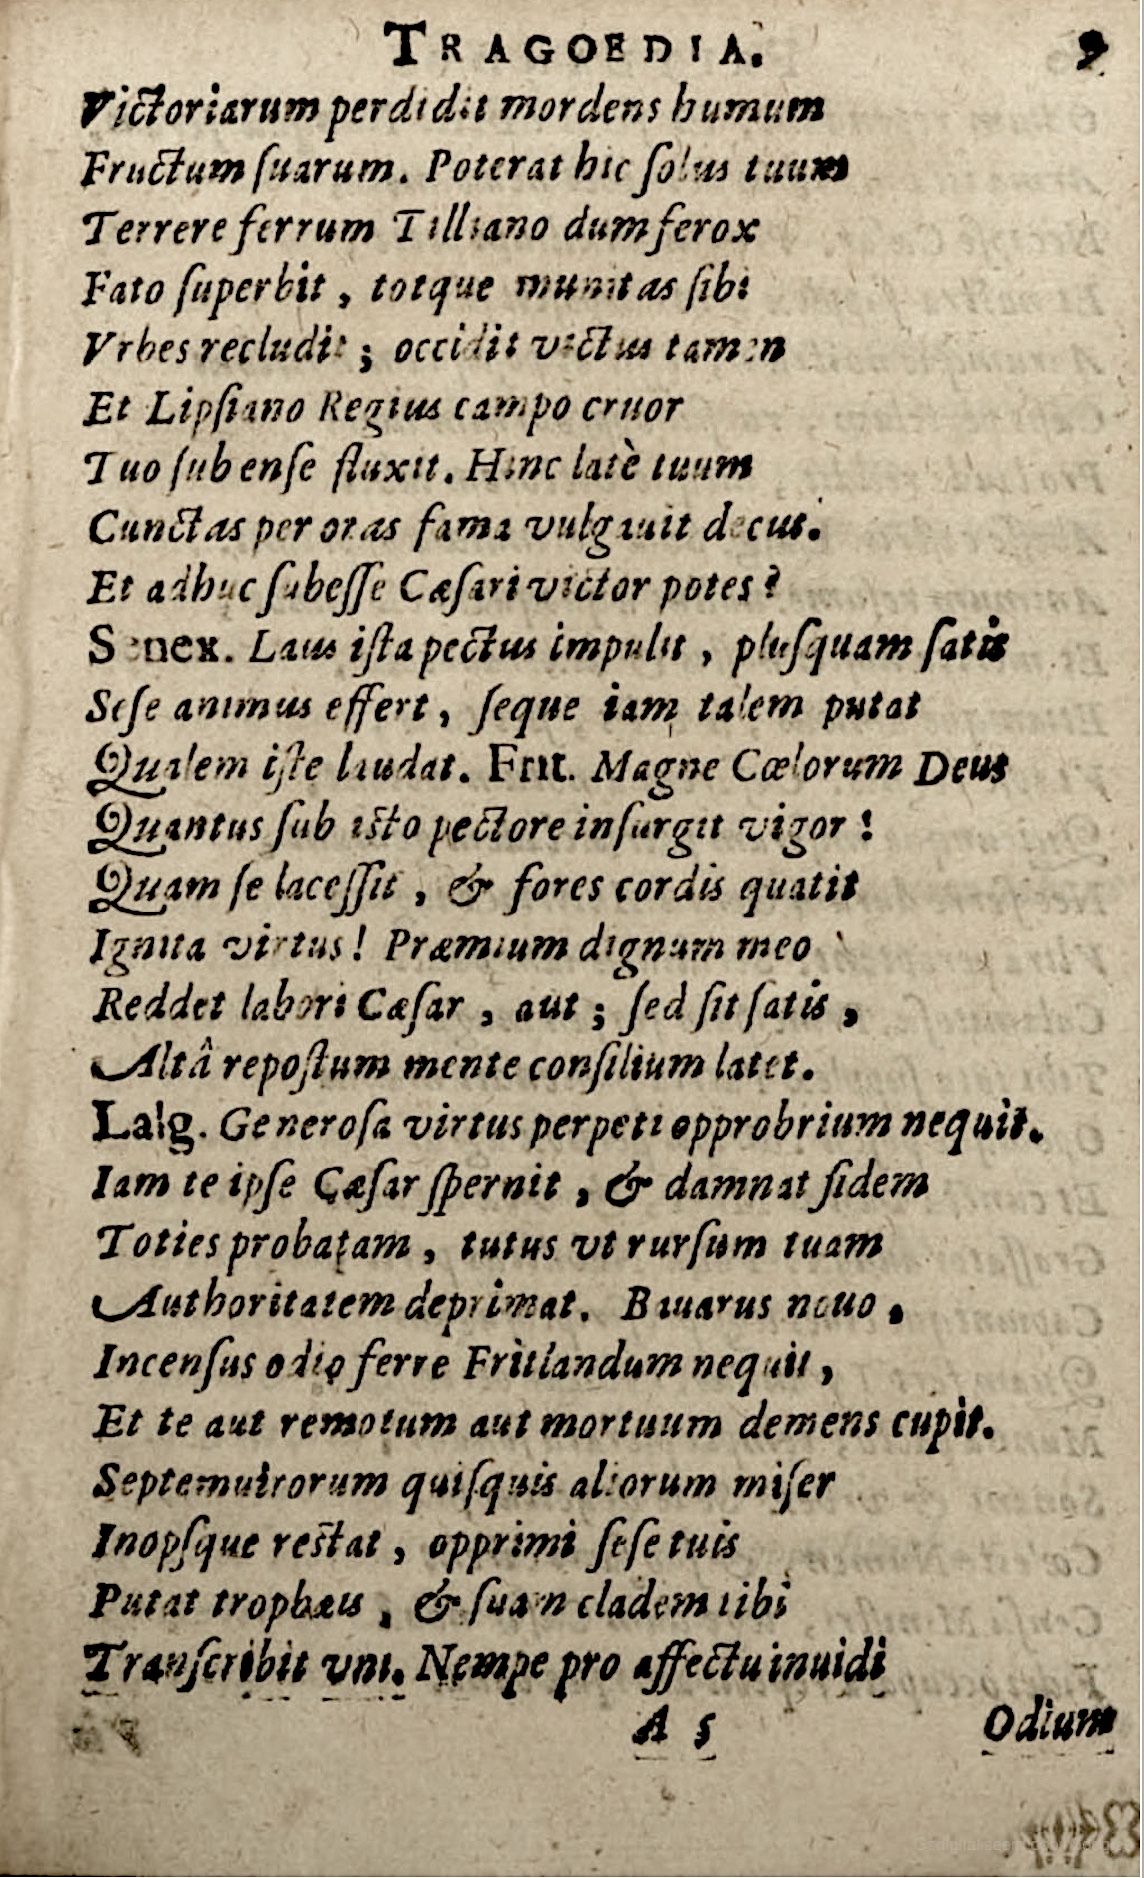 TRAGOEDIA. 9
Victoriarum perdidit mordens humum
Fructum ſuarum. Poterat hic ſolus tuum
Terrere ferrum Tilliano dum ferox
Fato ſuperbit, totque munitas ſibi
Vrbes recludit; occidit victus tamen
Et Lipſiano Regius campo cruor
Tuo ſub enſe fluxit. Hinc latè tuum
Cunctas per oras fama vulgauit decus.
Et adhuc ſubeſſe Cæſari victor potes?
Senex. Laus iſta pectus impulit, pluſquam ſatis
Seſe animus effert, ſeque iam talem putat
Qualem iſte laudat. Frit. Magne Cœlorum Deus
Quantus ſub iſto pectore inſurgit vigor!
Quam ſe laceſſit, & fores cordis quatit
Ignita virtus! Præmium dignum meo
Reddet labori Cæſar, aut; ſed ſit ſatis,
Altâ repoſtum mente conſilium latet.
Lalg. Generoſa virtus perpeti opprobrium nequit.
Iam te ipſe Cæſar ſpernit, & damnat fidem
Toties probatam, tutus vt rurſum tuam
Authoritatem deprimat. Bauarus nouo,
Incenſus odio ferre Fritlandum nequit,
Et te aut remotum aut mortuum demens cupit.
Septemuirorum quiſquis aliorum miſer
Inopſque reſtat, opprimi ſeſe tuis
Putat trophæis, & ſuam cladem tibi
Tranſcribit vni. Nempe pro affectu inuidi
A 5 Odium